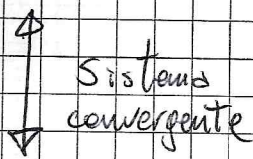 Sistema
convergente